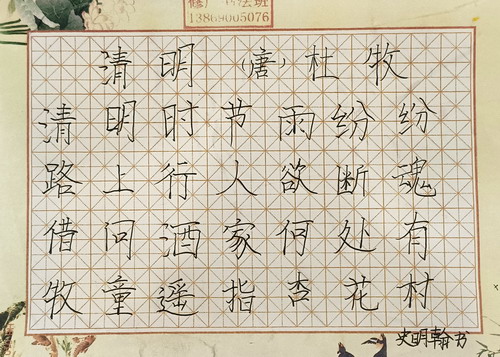 书法班
13869005076
清明 （唐）杜牧
清明时节雨纷纷
路上行人欲断魂
借问酒家何处有
牧童遥指杏花村
史明翰书